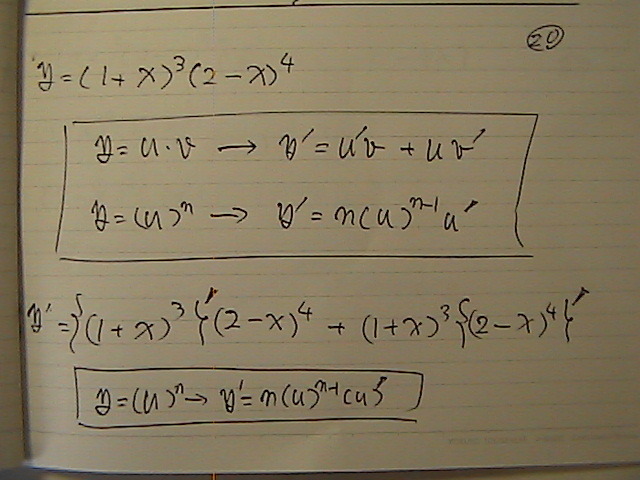 20
y = (1 + x)³(2 - x)⁴
y = u · v → y' = u'v + uv'
y = (u)ⁿ → y' = n(u)ⁿ⁻¹u'
y' = {(1 + x)³}'(2 - x)⁴ + (1 + x)³{(2 - x)⁴}'
y = (u)ⁿ → y' = n(u)ⁿ⁻¹(u)'